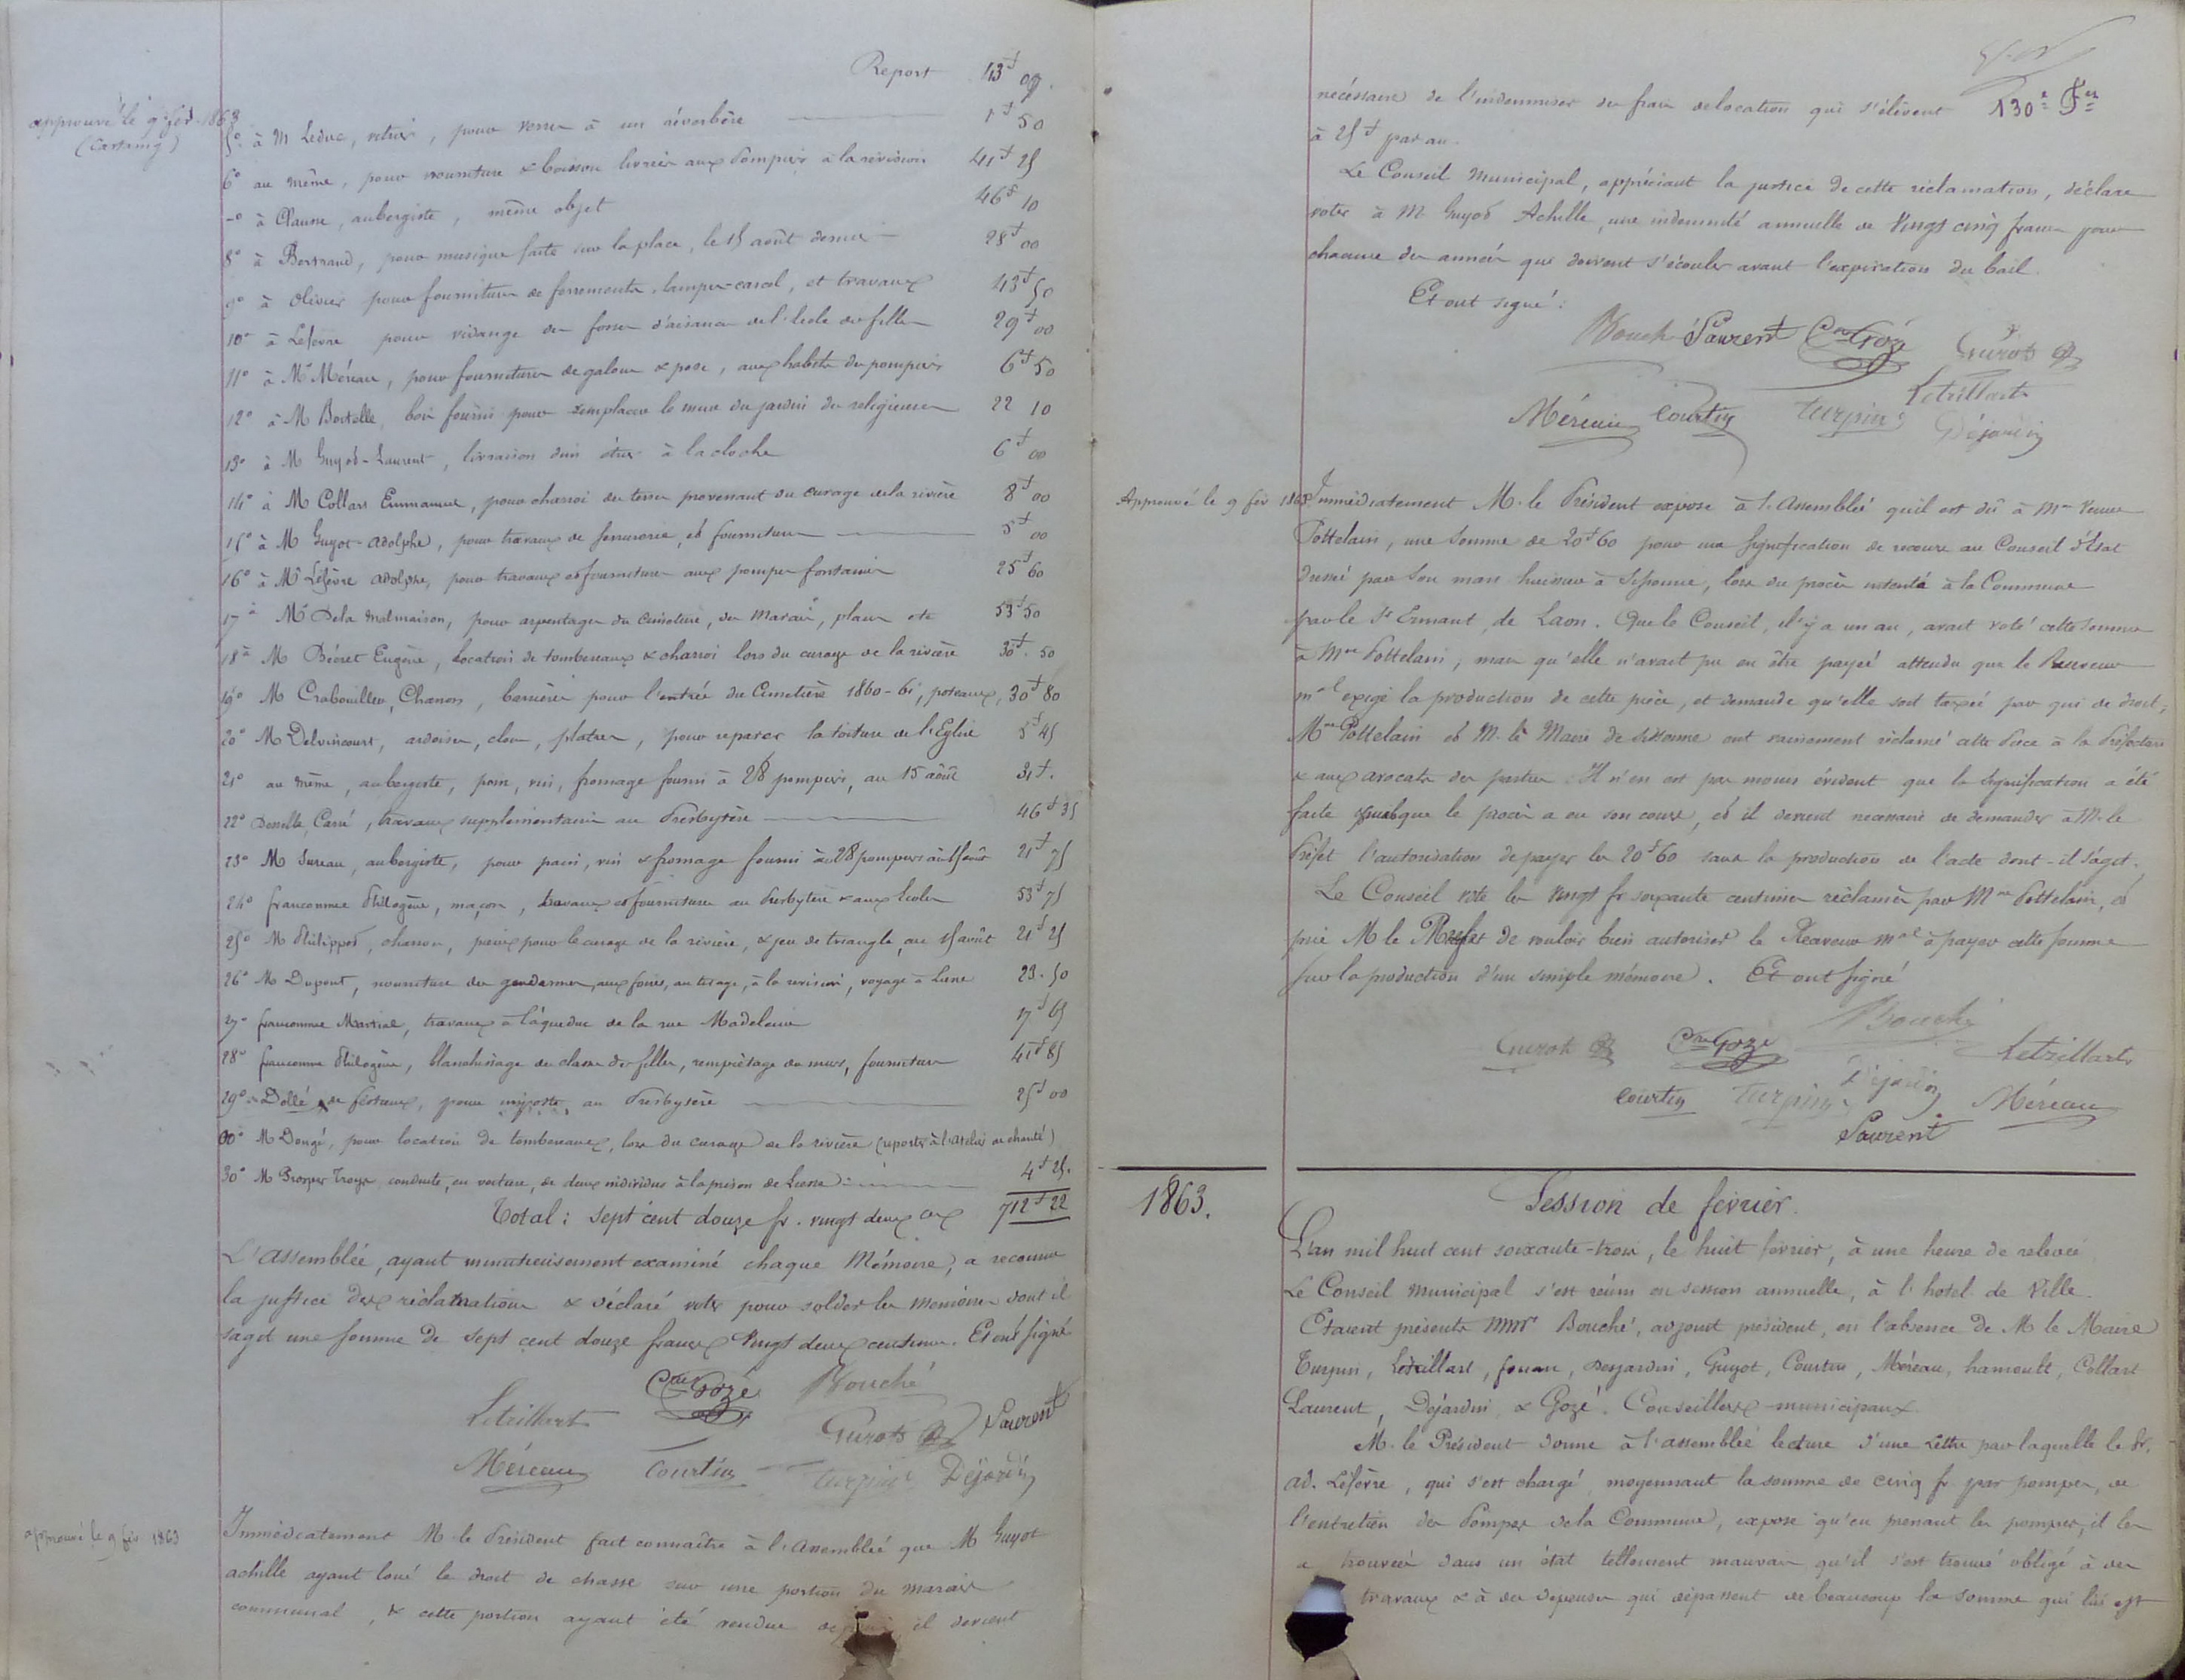 Report 43f 07.
approuvé le 9 fév. 1863
5° à M Leduc, vitrier, pour verre à un réverbère 1f 50
6° au même, pour nourriture & boisson livrées aux Pompiers à la révision 41f 25
-° à Clause, aubergiste, même objet 46f 10
8° à Bertrand, pour musique faite sur la place, le 15 août dernier 28f 00
9° à Olivier pour fourniture de ferrements, lampe-carcel, et travaux 43f 50
10° à Lefèvre pour vidange des fosses d'aisances de l'école des filles 29f 00
11° à Mr Méreau, pour fournitures de galons & pose, aux habits des pompiers 6f 50
12° à M Bortelle, bois fourni pour remplacer le mur du jardin des religieuses 22 10
13° à M Guyot-Laurent, livraison d'un étrier à la cloche 6f 00
14° à M Collart Emmanuel, pour charroi des terres provenant du curage de la rivière 8f 00
15° à M Guyot-Adolphe, pour travaux de serrurerie, et fournitures 5f 00
16° à Mr Lefèvre Adolphe, pour travaux et fournitures aux pompes fontaines 25f 60
17° à Mr De la Malmaison, pour arpentages du Cimetière, du Marais, plans etc 53f 50
18° à M Décret Eugène, location de tombereaux & charroi lors du curage de la rivière 30f. 50
19° M Crabouillez, Charron, barrière pour l'entrée du Cimetière 1860-61, poteaux, 30f 80
20° M Delvincourt, ardoises, clous, plâtres, pour réparer la toiture de l'Eglise 5f 45
21° au même, aubergiste, pain, vin, fromage fourni à 28 pompiers, au 15 août 31f.
22° Carré, travaux supplémentaires au Presbytère 46f 35
23° M Sureau, aubergiste, pour pain, vin & fromage fourni à 28 pompiers au 15 août 21f 75
24° franconme Philogène, maçon, travaux et fournitures au Presbytère & aux Ecoles 53f 75
25° M Philippot, charron, pour le curage de la rivière, & jeu de triangle, au 15 août 21f 25
26° M Dupont, nourriture des gendarmes, aux foires, au tirage, à la révision, voyage à Liesse 23.50
27° franconme Martial, travaux à l'aqueduc de la rue Madeleine 17f 65
28° franconme Philogène, blanchissage de classe des filles, rempiétage de murs, fournitures 41f 85
29° Dollé de pour au Presbytère 25f 00
00° M Dougé, pour location de tombereaux, lors du curage de la rivière (reporté à l'atelier de charité)
30° M Prosper Troyr, conduite, en voiture, de deux individus à la prison de Liesse 4f 25.
Total: Sept cent douze fr. vingt deux ces 712f 22
L'Assemblée, ayant minutieusement examiné chaque Mémoire, a reconnu
la justice des réclamations & déclaré voter pour solder les mémoires dont il
s'agit une somme de Sept cent douze francs Vingt deux centimes. Et ont signé
Cne Gozé Bouché
Letrillart Guyot Laurent
Méreau Courtin Turpin Déjardin
approuvé le 9 fév 1863
Immédiatement M le Président fait connaître à l'Assemblée que M Guyot
achille ayant loué le droit de chasse sur une portion du marais
communal, & cette portion ayant été vendue depuis, il devient
130e Fet
nécessaire de l'indemniser des frais de location qui s'élèvent
à 25f par an.
Le Conseil municipal, appréciant la justice de cette réclamation, déclare
voter à M. Guyot Achille, une indemnité annuelle de Vingt cinq francs pour
chacune des années qui doivent s'écouler avant l'expiration du bail.
Et ont signé:
Bouché Laurent Cne Gozé Guyot
Letrillart
Méreau Courtin Turpin Déjardin
Approuvé le 9 fév 1863
Immédiatement M. le Président expose à l'Assemblée qu'il est dû à Me Veuve
Pottelain, une Somme de 20f60 pour une signification de recours au Conseil d'Etat
dressé par son mari huissier à Sissonne, lors du procès intenté à la Commune
par le Sr Ermant, de Laon. Que le Conseil, il y a un an, avait voté cette somme
à Me Pottelain, mais qu'elle n'avait pu en être payée attendu que le Receveur
mal exige la production de cette pièce, et demande qu'elle soit taxée par qui de droit;
Me Pottelain et M. le Maire de Sissonne ont vainement réclamé cette Pièce à la Préfecture
& aux avocats des parties. Il n'en est pas moins évident que la signification a été
faite puisque le procès a eu son cours, et il devient nécessaire de demander à M. le
Préfet l'autorisation de payer les 20f60 sans la production de l'acte dont-il s'agit.
Le Conseil vote les Vingt fr soixante centimes réclamés par Me Pottelain, et
prie M le Préfet de vouloir bien autoriser le Receveur mal à payer cette somme
sur la production d'un simple mémoire. Et ont signé
Bouché
Guyot Cne Gozé Letrillart
Déjardin
Courtin Turpin Méreau
Laurent
1863.
Session de février.
L'an mil huit cent soixante-trois, le huit février, à une heure de relevée
Le Conseil municipal s'est réuni en session annuelle, à l'hotel de Ville.
Etaient présents MMrs Bouché, adjoint président, en l'absence de M le Maire
Turpin, Letrillart, fouan, Desjardins, Guyot, Courtin, Méreau, hamoult, Collart
Laurent, Déjardin & Gozé. Conseillers municipaux.
M. le Président donne à l'assemblée lecture d'une Lettre par laquelle le Sr.
Ad. Lefèvre, qui s'est chargé moyennant la somme de cinq fr par pompes, de
l'entretien des Pompes de la Commune, expose qu'en prenant les pompes, il les
a trouvées dans un état tellement mauvais qu'il s'est trouvé obligé à des
travaux & à des dépenses qui dépassent de beaucoup la somme qui lui est